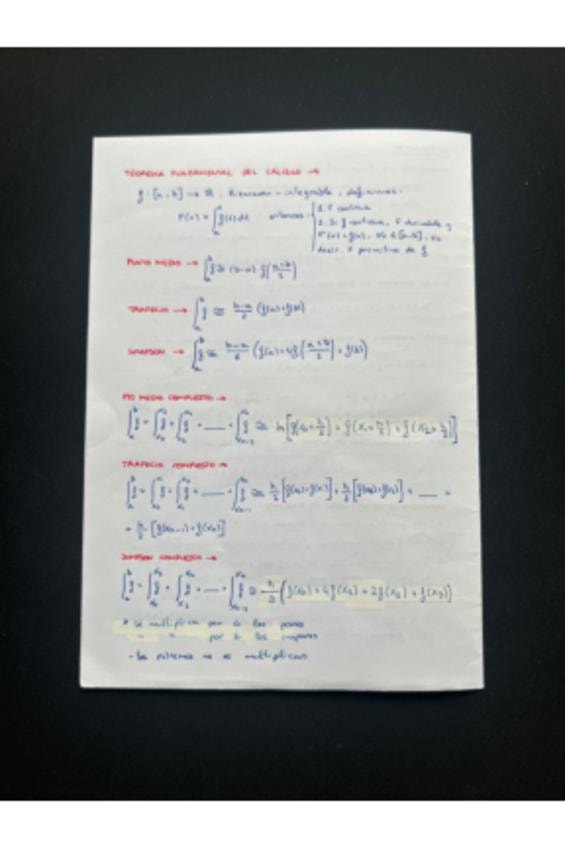 TEOREMA FUNDAMENTAL DEL CÁLCULO →
f: [a, b] → ℝ, Riemann-integrable, definimos:
F(x) = ∫ₐ f(t) dt entonces: 1. F continua
2. Si f continua, F derivable y
F'(x) = f(x), ∀x ∈ [a, b],
decir, F primitiva de f
PUNTO MEDIO → ∫ₐᵇ f ≅ (b-a) · f((a+b)/2)
TRAPECIO → ∫ₐᵇ f ≅ (b-a)/2 (f(a)+f(b))
SIMPSON → ∫ₐᵇ f ≅ (b-a)/6 (f(a)+4f((a+b)/2)+f(b))
PTO MEDIO COMPUESTO →
∫ₐᵇ f = ∫ f + ∫ f + ___ + ∫ f ≅ h [f(x₀+h/2) + f(x₁+h/2) + f(x₂+h/2)]
TRAPECIO COMPUESTO →
∫ₐᵇ f = ∫ f + ∫ f + ___ + ∫ f ≅ h/2 [f(x₀)+f(x₁)] + h/2 [f(x₁)+f(x₂)] + ___ +
+ h/2 [f(xₙ₋₁)+f(xₙ)]
SIMPSON COMPUESTO →
∫ₐᵇ f = ∫ f + ∫ f + ___ + ∫ f ≅ h/3 (f(x₀)+4f(
* se multiplica por los pares
" " por los impares
- los extremos no se multiplican